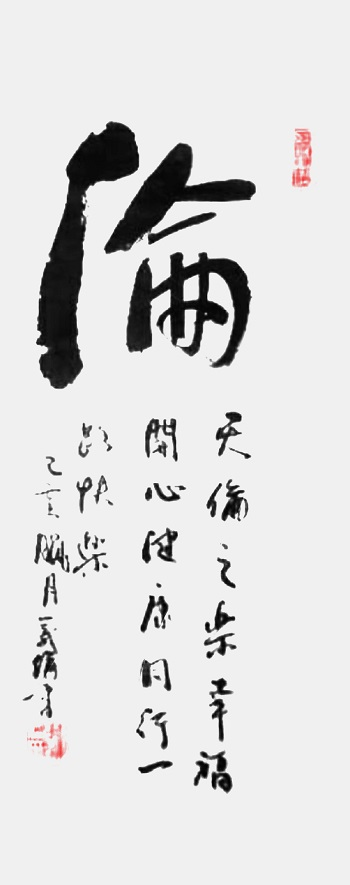 倫
天倫之樂幸福
開心健康同行一
路快樂
己亥臘月義